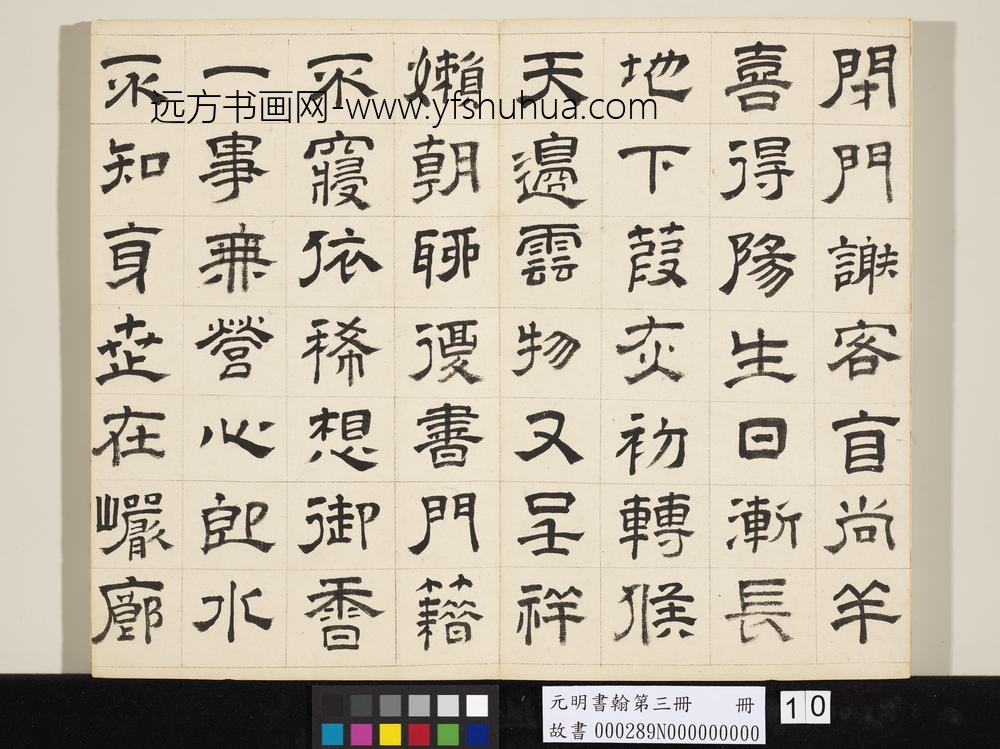 閉門謝客盲尚羊
喜得陽生日漸長
地下葭灰初轉候
天邊雲物又呈祥
嬾朝聊復書門籍
不寢依稀想御香
一事兼營心即水
不知身世在巖廊
远方书画网-www.yfshuhua.com
元明書翰第三冊 冊
故書 000289N000000000
10